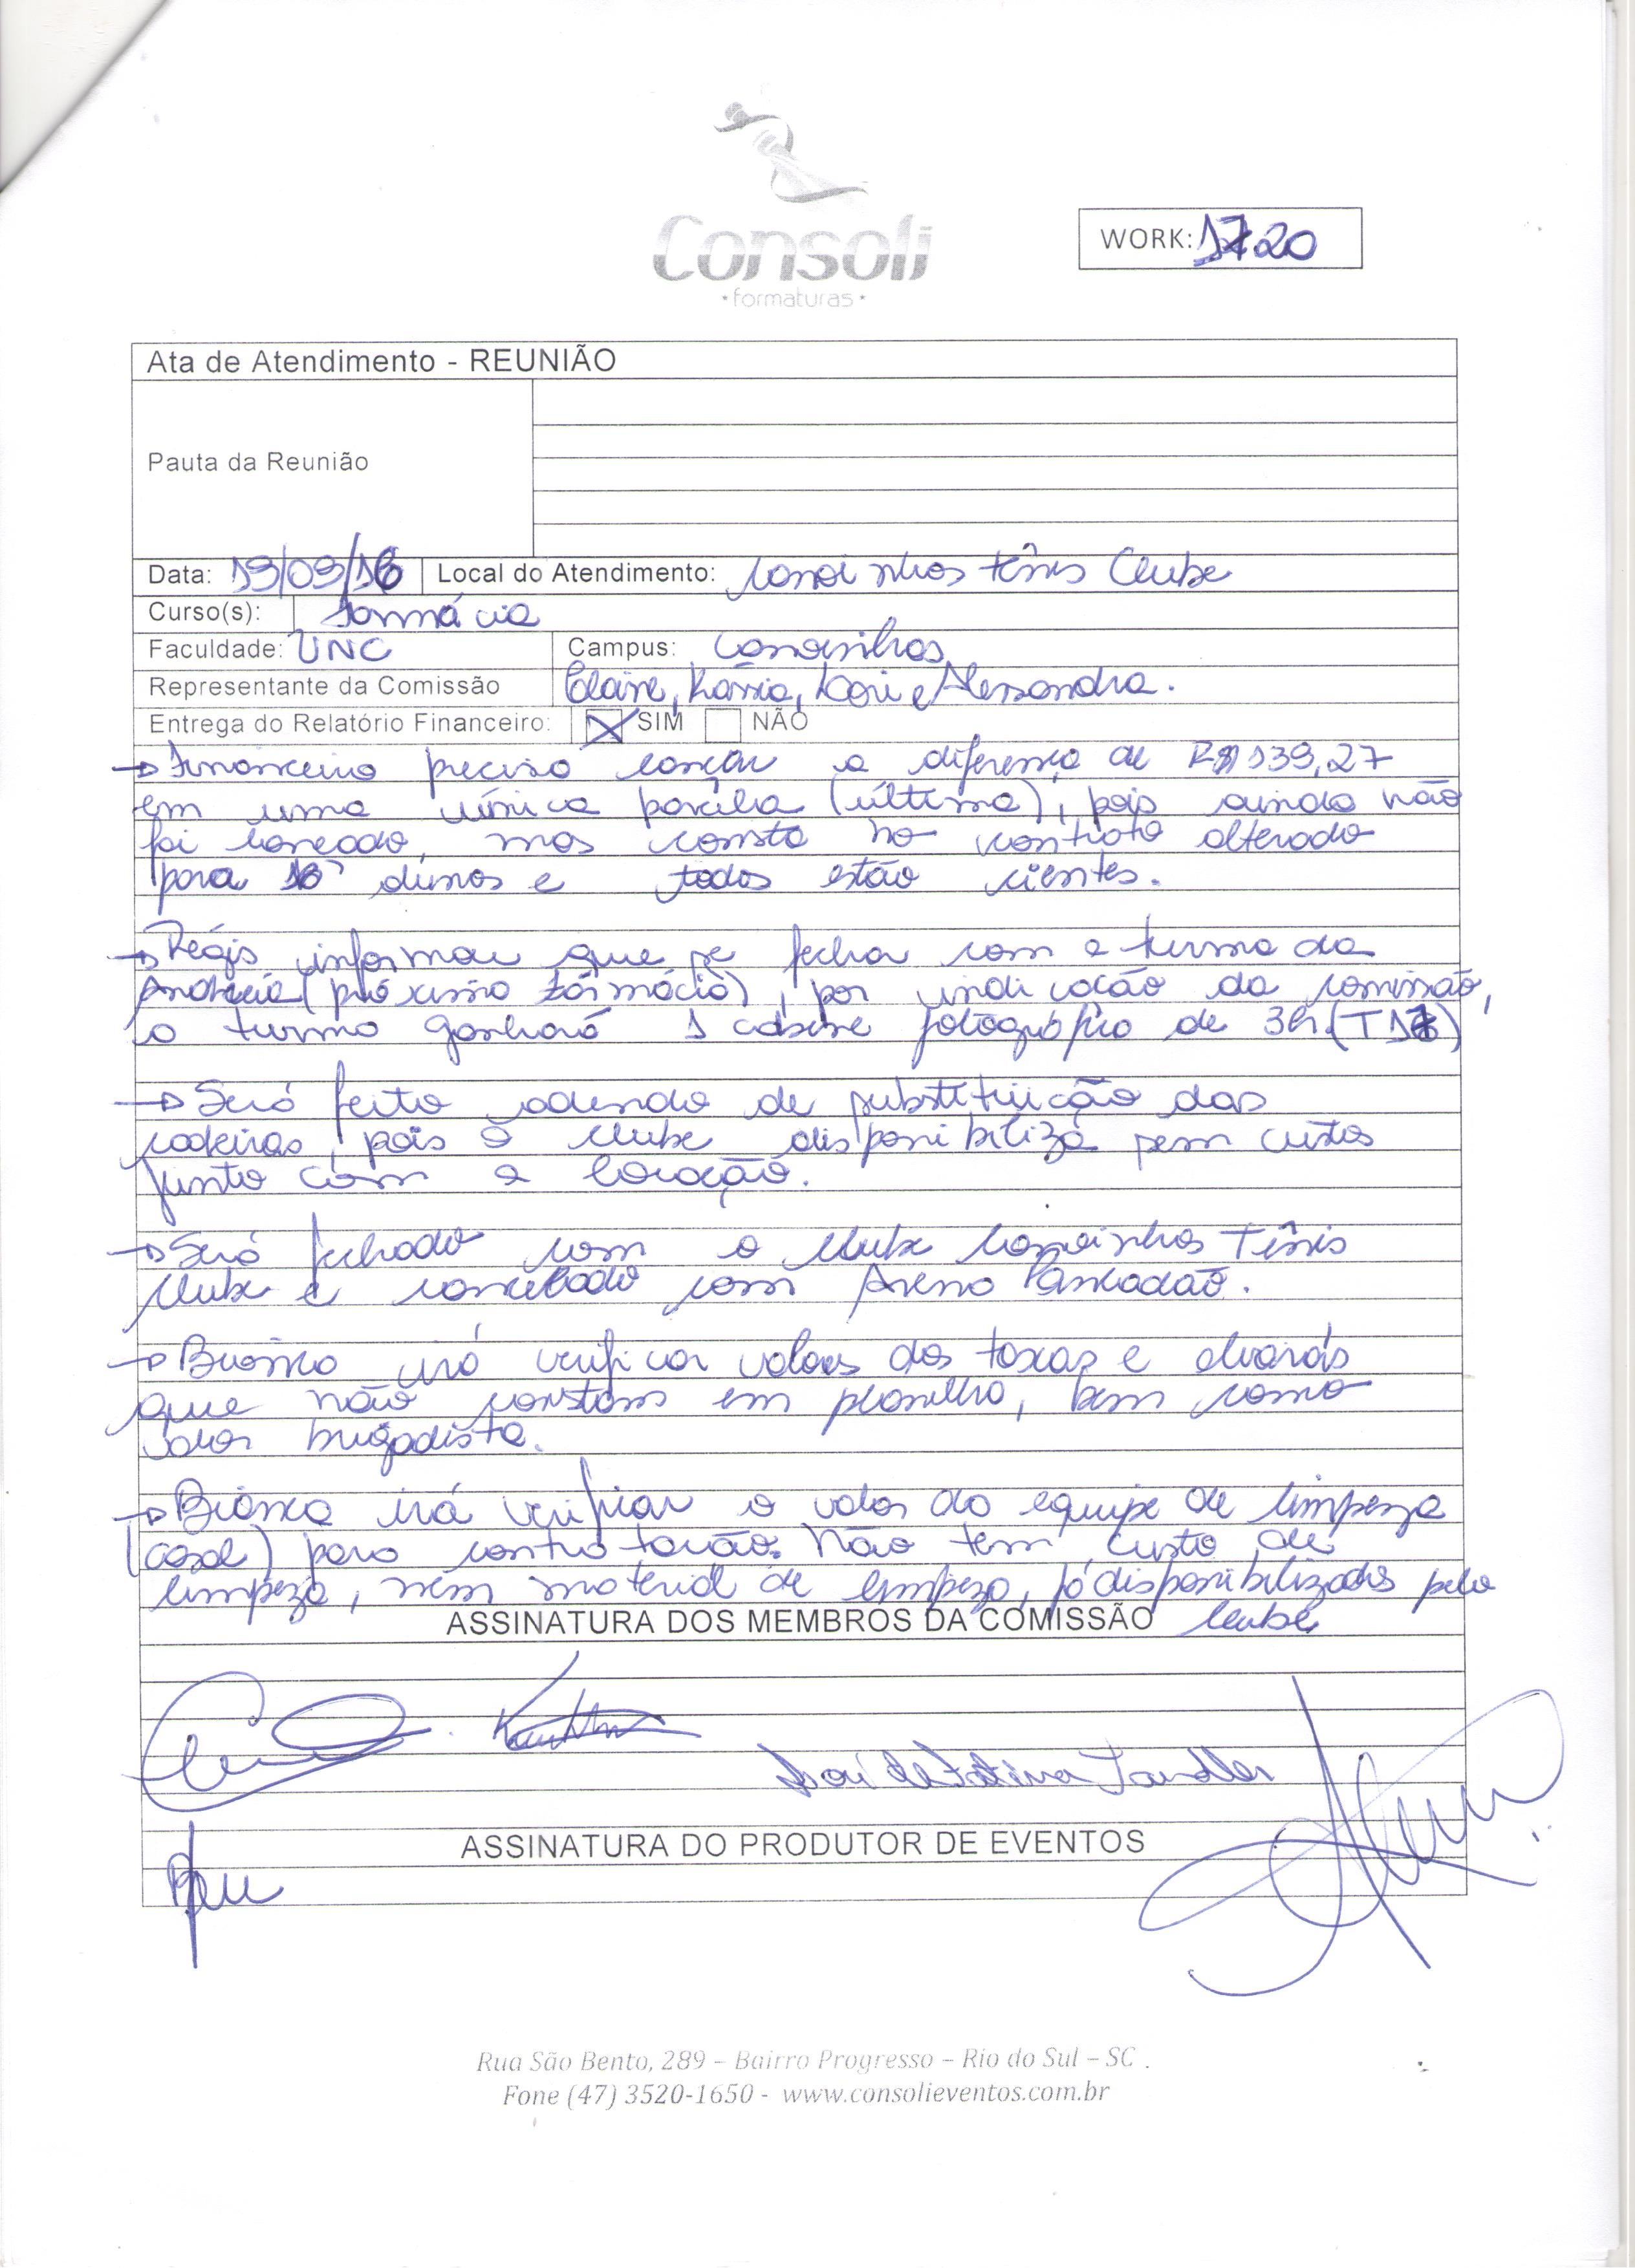 Consoli
• formaturas •
WORK: 1720
Ata de Atendimento - REUNIÃO
Pauta da Reunião
Data: 19/09/16 Local do Atendimento: Canoinhas tênis Clube
Curso(s): Farmácia
Faculdade: UNC Campus: Canoinhas
Representante da Comissão Elaine, Kássia, Lori e Alessandra.
Entrega do Relatório Financeiro: X SIM NÃO
→ Financeiro precisa lançar a diferença de R$ 139,27
em uma única parcela (última), pois ainda não
foi lançado, mas consta no contrato alterado
para 16 alunos e todos estão cientes.
→ Régis informou que se fechar com a turma da
(próxima farmácia), por indicação da comissão,
a turma ganhará 1 cabine fotográfica de 3h
→ Será feito adendo de substituição das
cadeiras, pois o clube disponibiliza sem custos
junto com a locação.
→ Será fechado com o clube Canoinhas Tênis
Clube e cancelado com Arena
→ Bianca irá verificar valores das taxas e alvarás
que não constam em planilha, bem como
valor brigadista.
→ Bianca irá verificar o valor da equipe de limpeza
(casal) para contratação. Não tem custo de
limpeza, nem material de limpeza, já disponibilizados pelo
clube
ASSINATURA DOS MEMBROS DA COMISSÃO
de Fatima
ASSINATURA DO PRODUTOR DE EVENTOS
Rua São Bento, 289 – Bairro Progresso – Rio do Sul – SC .
Fone (47) 3520-1650 - www.consolieventos.com.br